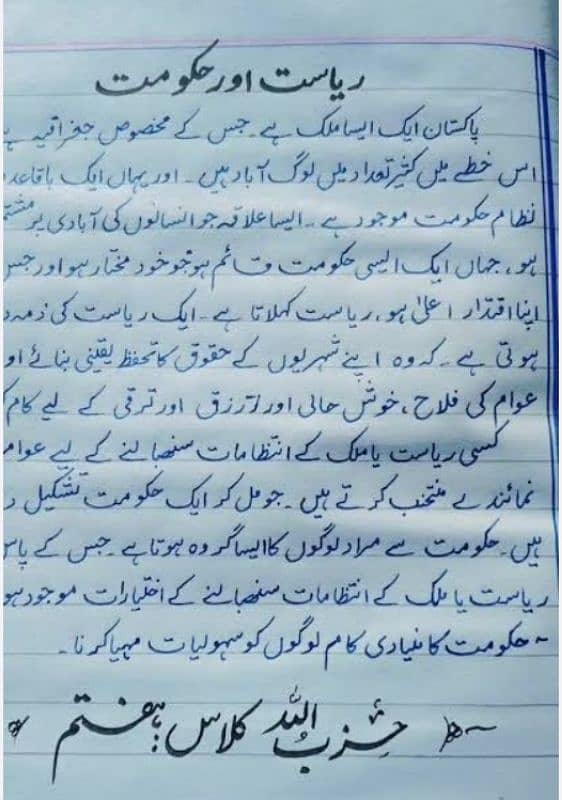 ریاست اور حکومت
پاکستان ایک ایسا ملک ہے۔ جس کے مخصوص جغرافیہ
اس خطے میں کثیر تعداد میں لوگ آباد ہیں۔ اور یہاں ایک باقاعدہ
نظام حکومت موجود ہے۔ ایسا علاقہ جو انسانوں کی آبادی پر
ہو، جہاں ایک ایسی حکومت قائم ہو جو خود مختار ہو اور جس
اپنا اقتدار اعلیٰ ہو، ریاست کہلاتا ہے۔ ایک ریاست کی
ہوتی ہے۔ کہ وہ اپنے شہریوں کے حقوق کا تحفظ یقینی بنائے
عوام کی فلاح، خوش حالی اور اور ترقی کے لیے کام
کسی ریاست یا ملک کے انتظامات سنبھالنے کے لیے
نمائندے منتخب کرتے ہیں۔ جو مل کر ایک حکومت تشکیل
ہیں۔ حکومت سے مراد لوگوں کا ایسا گروہ ہوتا ہے۔ جس کے پاس
ریاست یا ملک کے انتظامات سنبھالنے کے اختیارات موجود ہو
۔ حکومت کا بنیادی کام لوگوں کو سہولیات مہیا کرنا۔
حزب اللہ کلاس: ہفتم